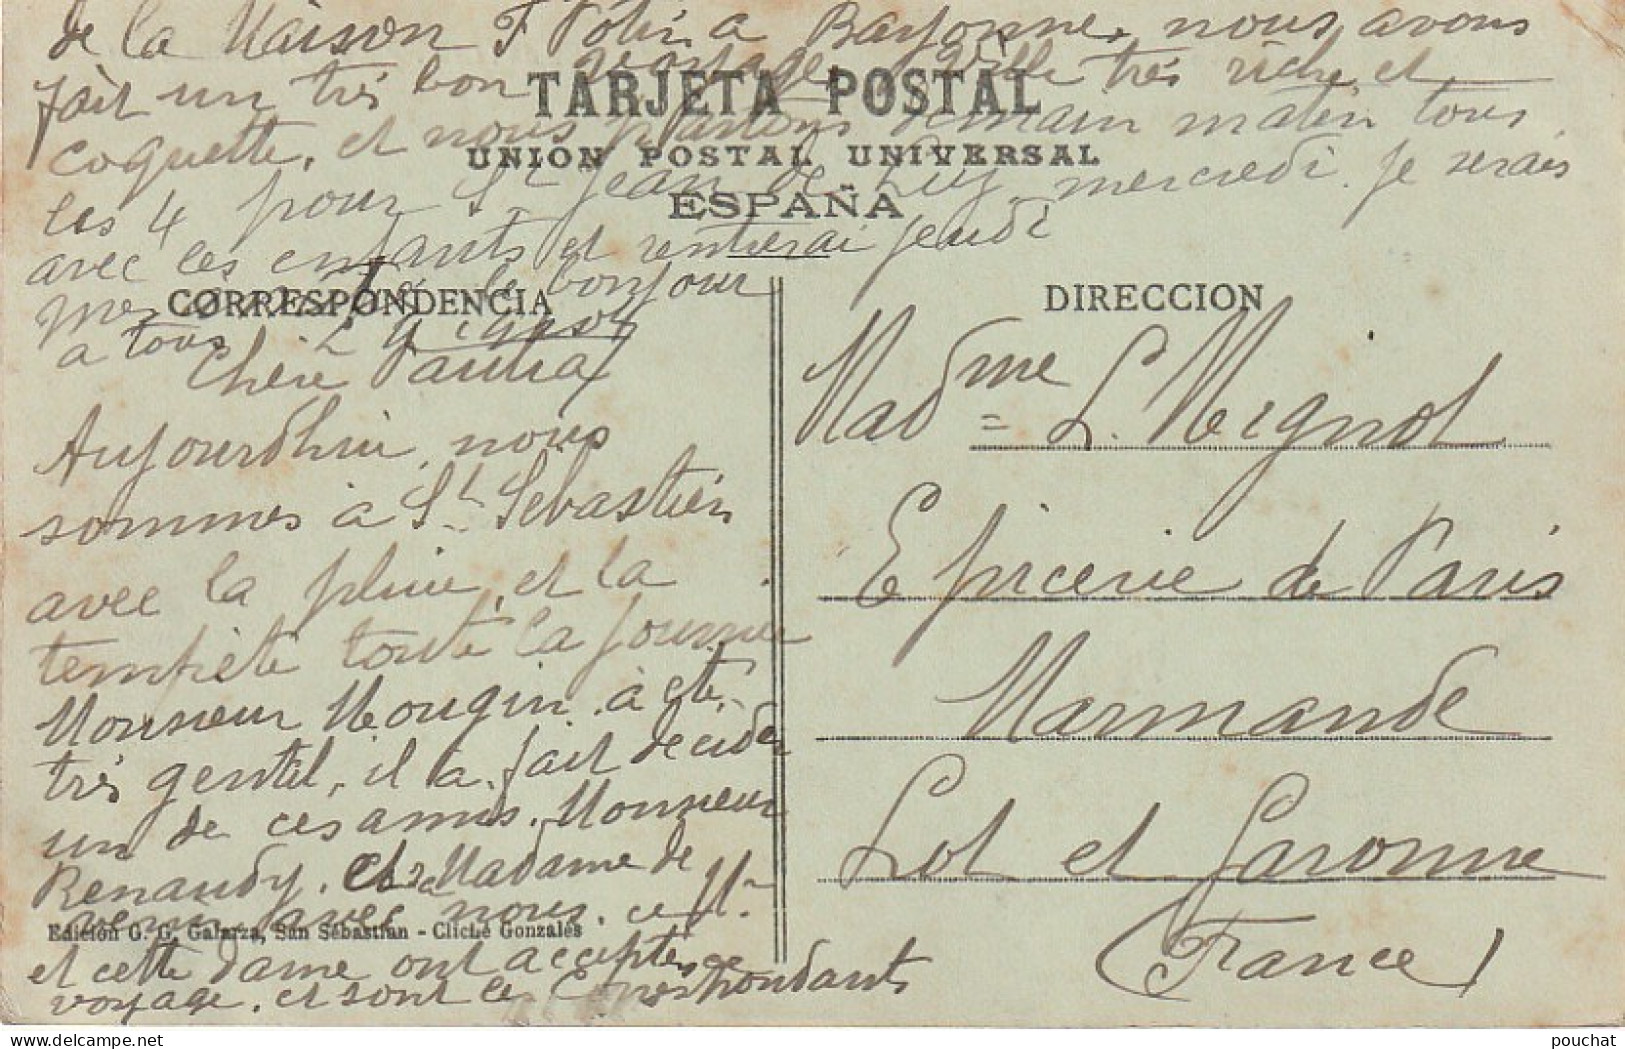 de la Maison F à Bayonne, nous avons
fait un très bon voyage, ville très riche et
TARJETA POSTAL
coquette, et nous partons demain matin tous
UNIÓN POSTAL UNIVERSAL
les 4 pour St Jean de Luz, mercredi. je serais
ESPAÑA
avec les enfants et rentrerai jeudi
le bonjour
CORRESPONDENCIA
a tous L Mignot
Chère Paula
Aujourdhui, nous
sommes à St Sébastien
avec la pluie, et la
tempête toute la journée
Monsieur Mougin. à été
très gentil, il a fait décider
un de ces amis. Monsieur
Renaudy. et Madame de
venir avec nous. ce Mr
Edición G. G. Galarza, San Sebastian - Cliché Gonzalés
et cette dame ont acceptés ce
voyage. et sont les Correspondants
DIRECCION
Madme L. Mignot
Epicerie de Paris
Marmande
Lot et Garonne
(France)
delcampe.net
pouchat